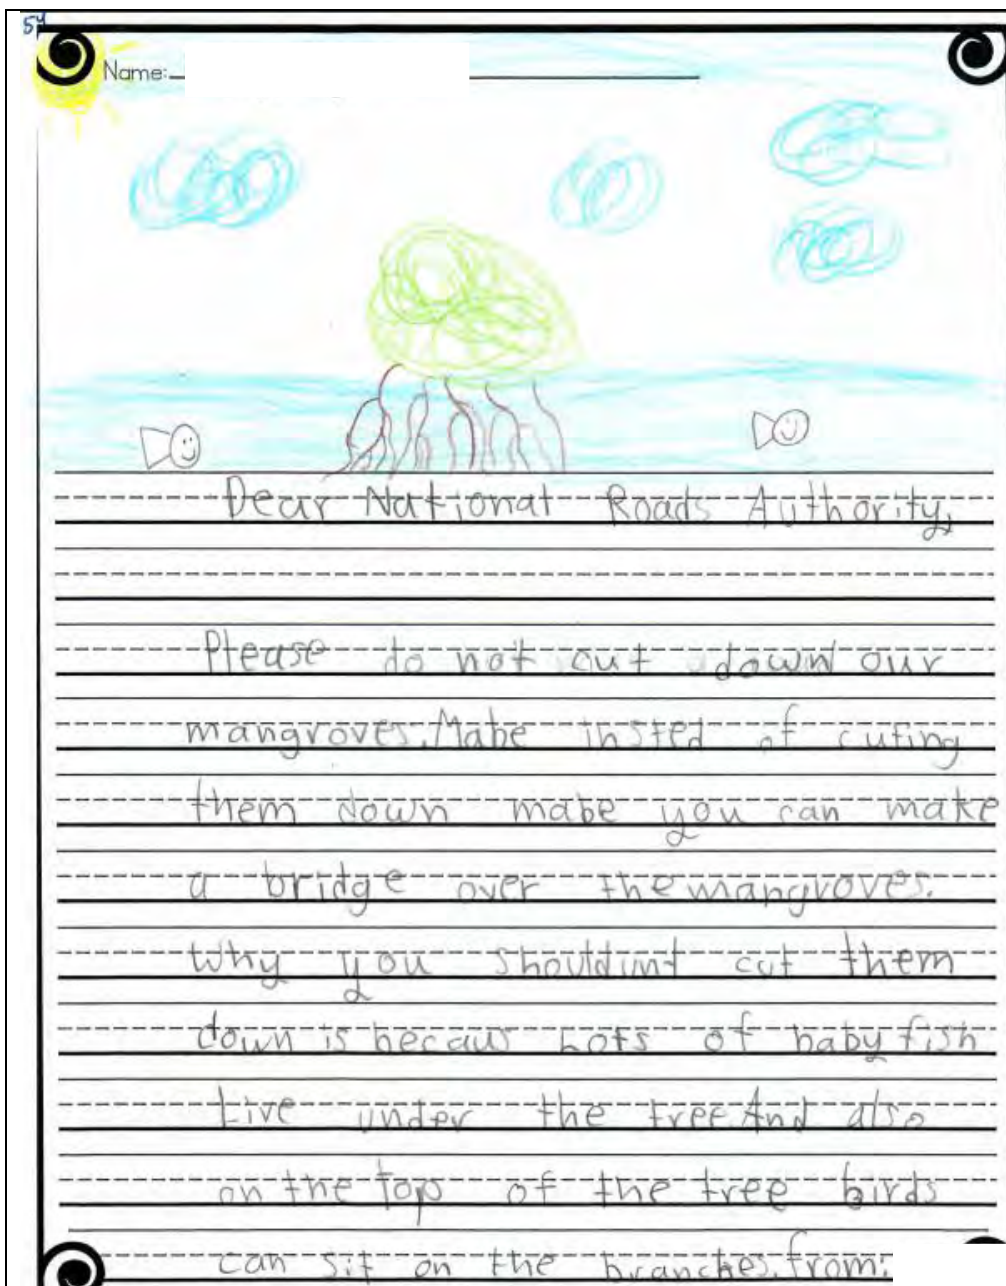 54
Name:
Dear National Roads Authority,
Please do not cut down our
mangroves. Mabe insted of cuting
them down mabe you can make
a bridge over the mangroves.
Why you shouldint cut them
down is becaus Lots of baby fish
Live under the tree. And also
on the top of the tree birds
can sit on the branches. from: